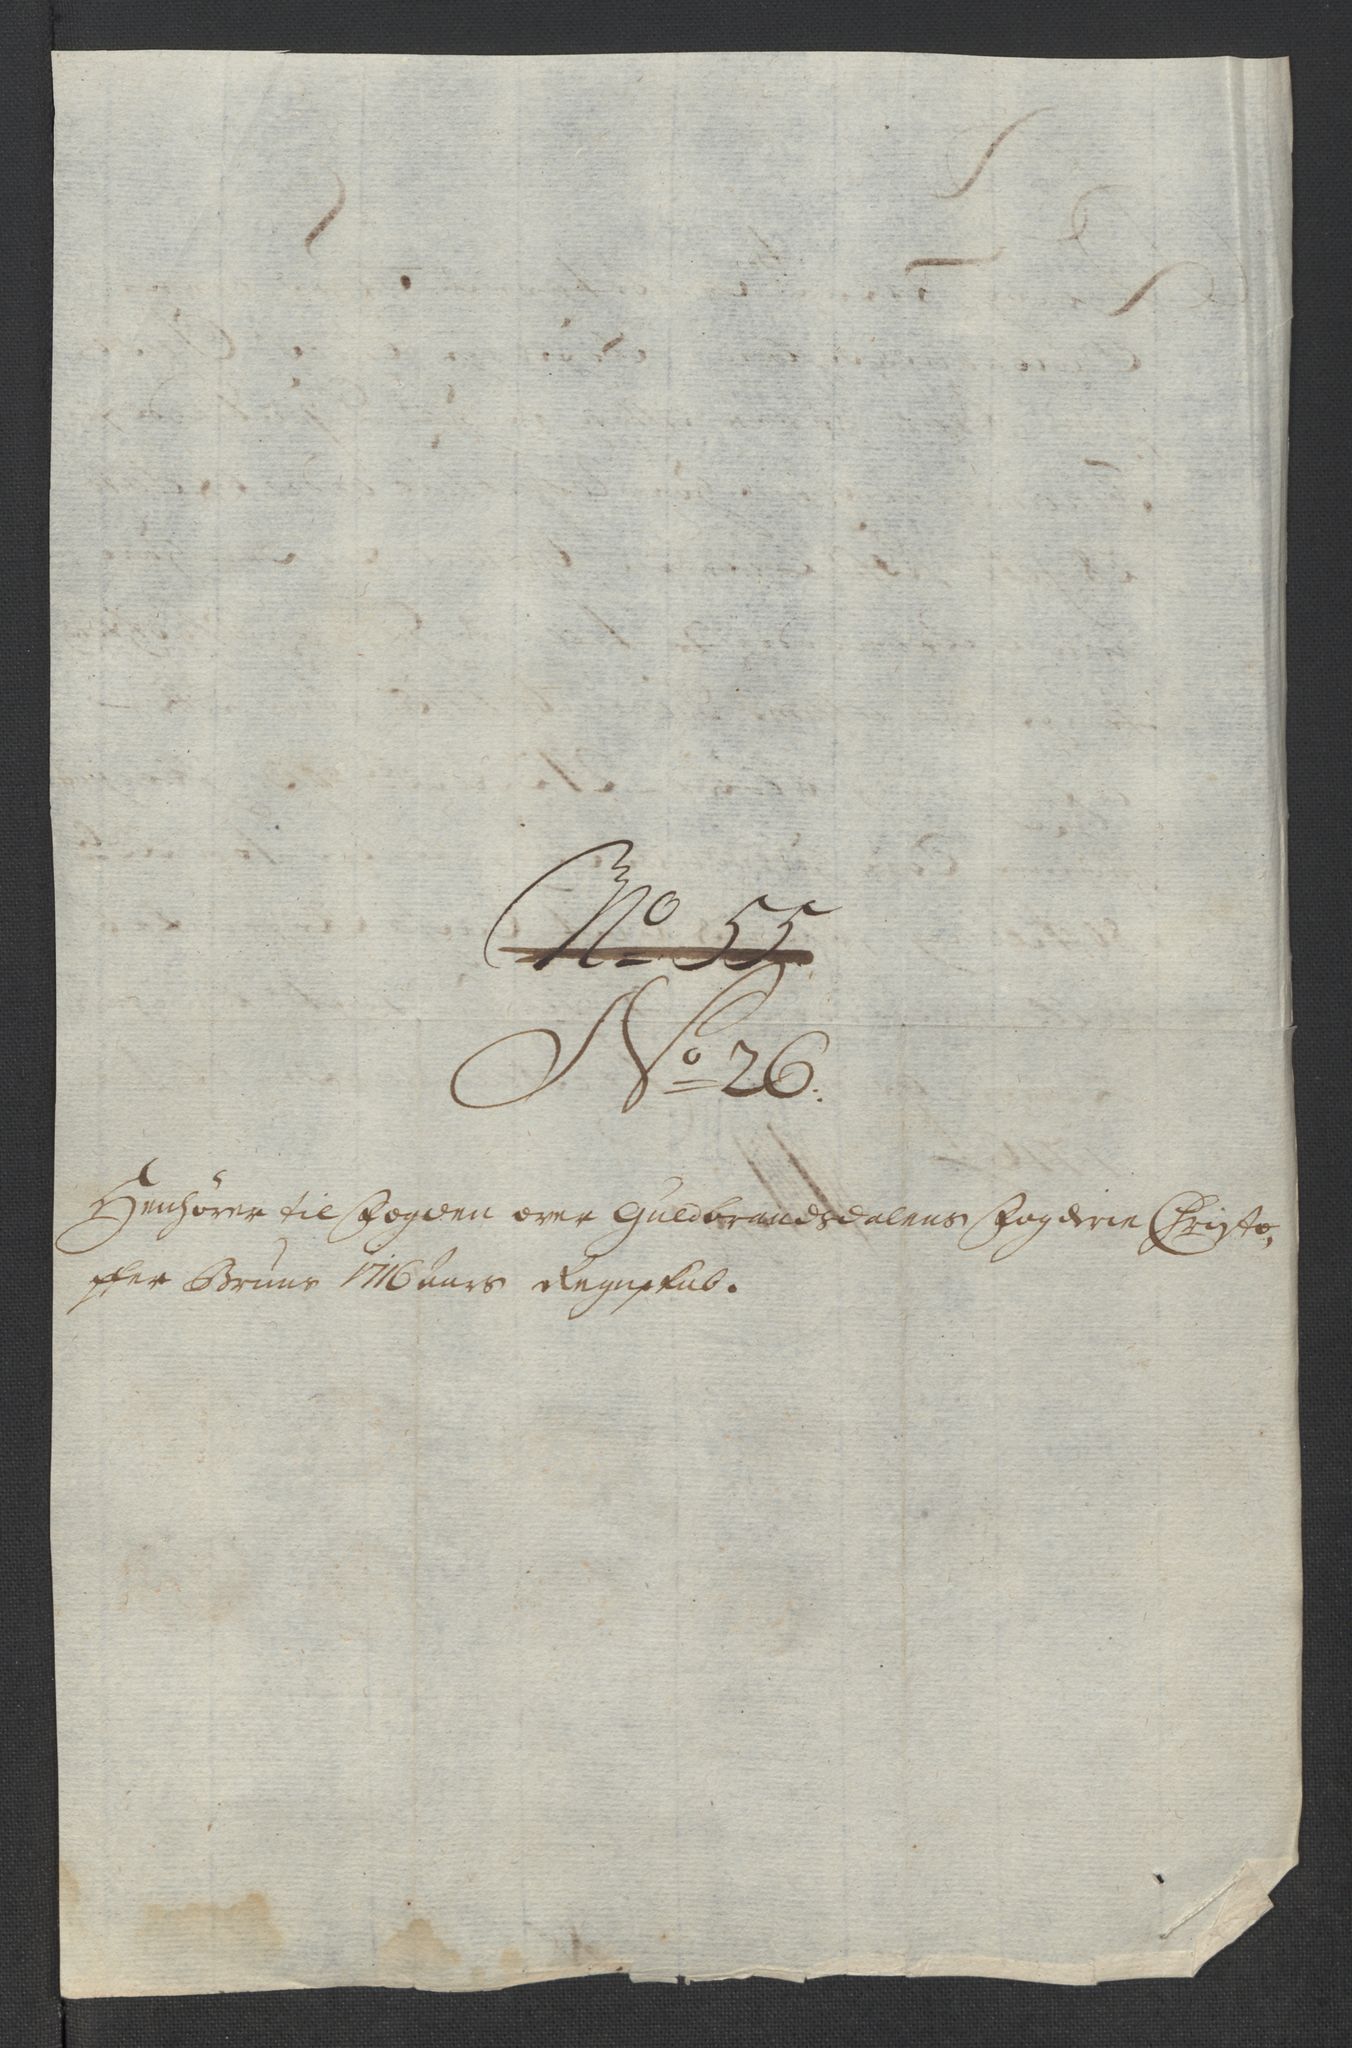 No 55.
No 26.
Henhører til Fogden over Guldbrandsdalens Fogderie Christo,
pher Bruns 1716 aars Regnskab.